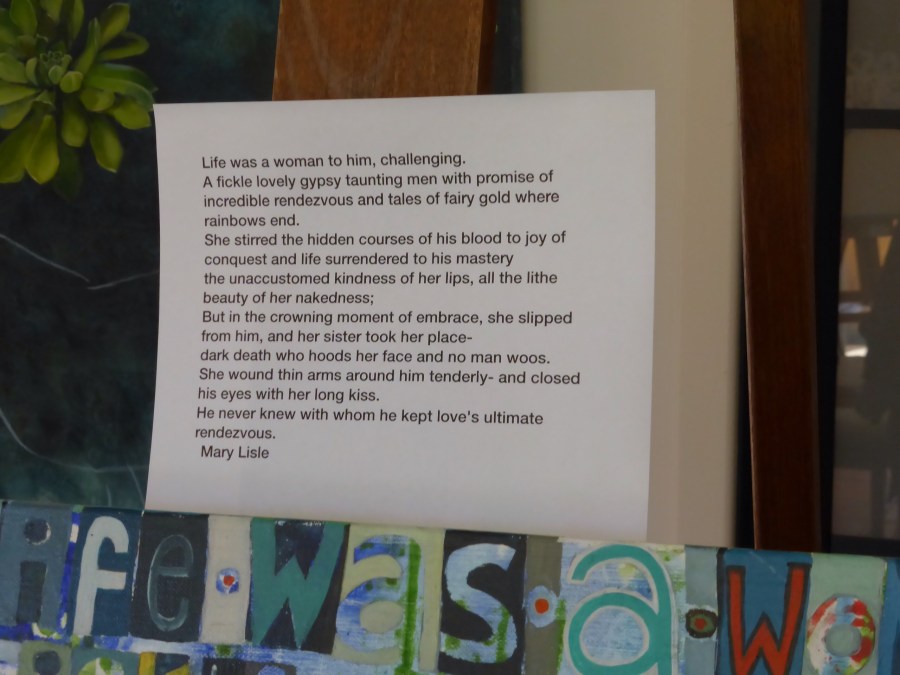 Life was a woman to him, challenging.
A fickle lovely gypsy taunting men with promise of
incredible rendezvous and tales of fairy gold where
rainbows end.
She stirred the hidden courses of his blood to joy of
conquest and life surrendered to his mastery
the unaccustomed kindness of her lips, all the lithe
beauty of her nakedness;
But in the crowning moment of embrace, she slipped
from him, and her sister took her place-
dark death who hoods her face and no man woos.
She wound thin arms around him tenderly- and closed
his eyes with her long kiss.
He never knew with whom he kept love's ultimate
rendezvous.
Mary Lisle
ife·was·a·wo